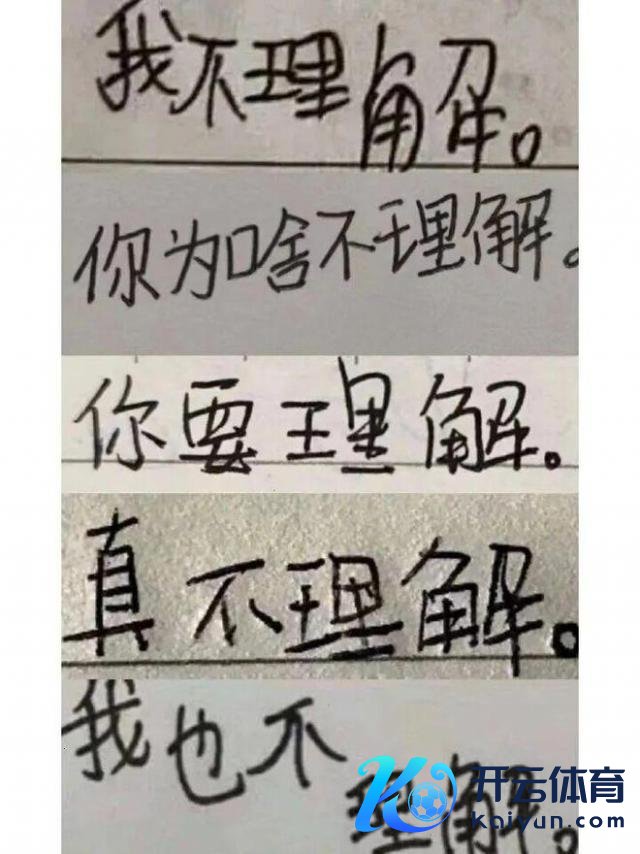 我不理解。
你为啥不理解。
你要理解。
真不理解。
我也不
理解。
开云体育
Kaiyun.com